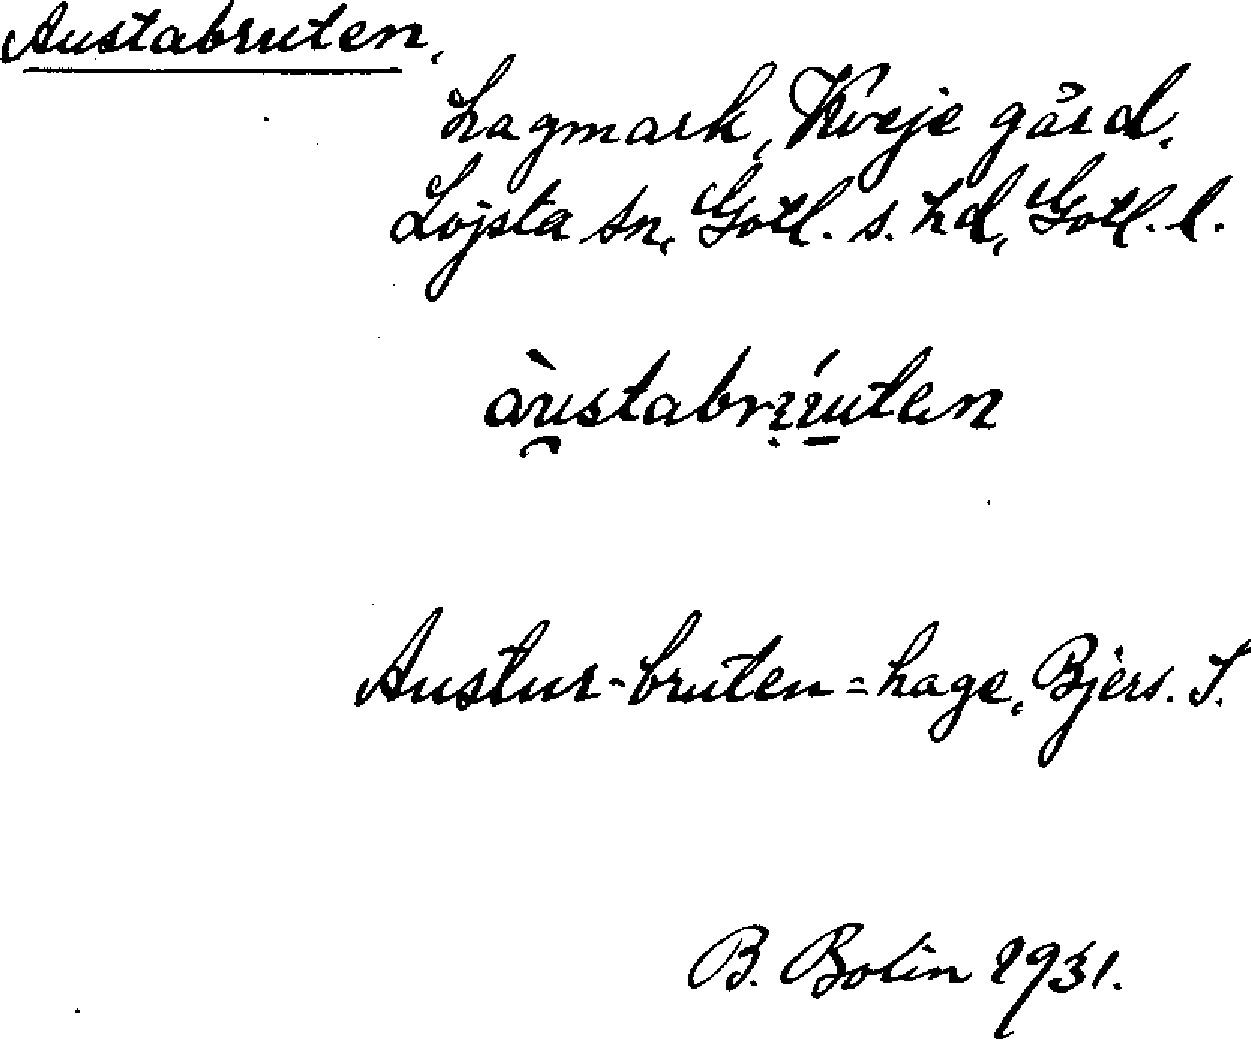 Austabruten,
hagmark, Kveje gård,
Lojsta sn, Gotl. s. hd, Gotl. l.
àu̯stabrúutən
Austur-bruten = hage, Bjers. S.
B. Bolin 1931.